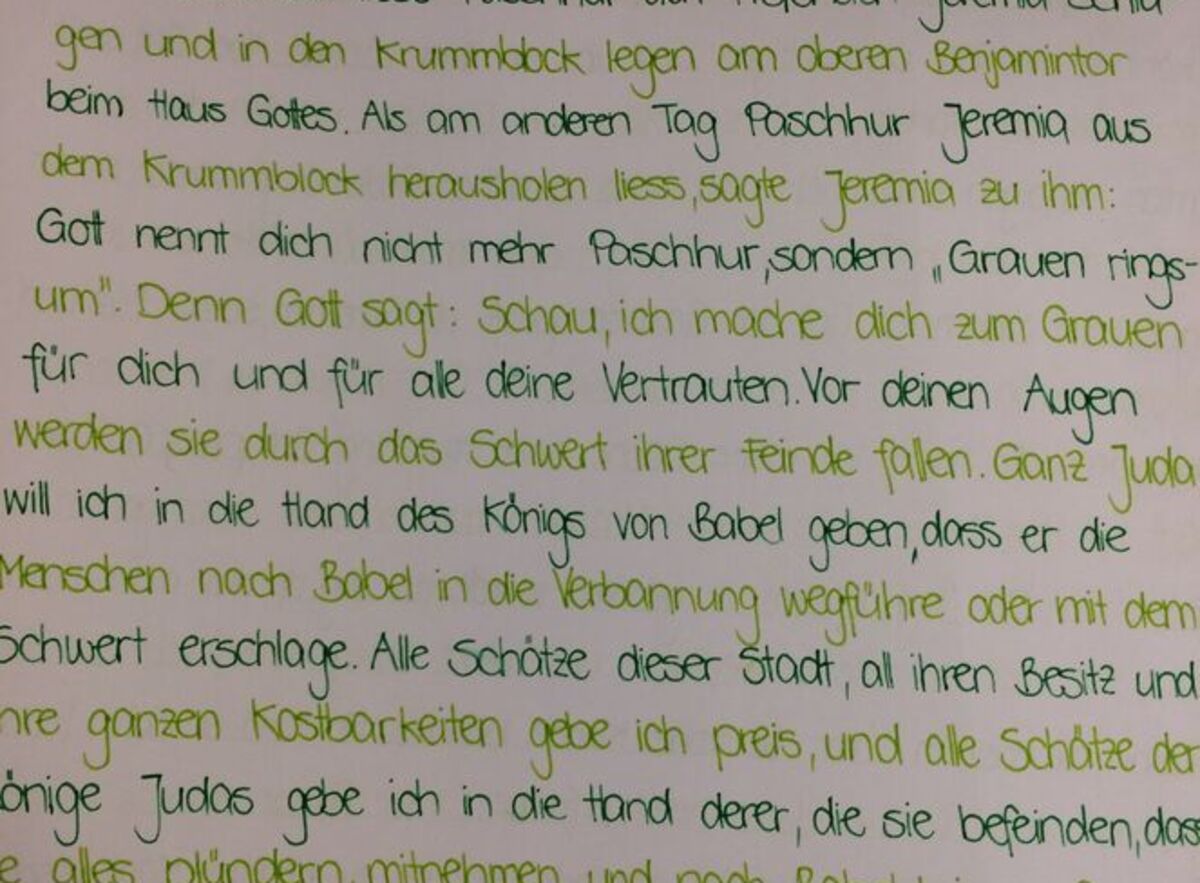 Jeremia schla
gen und in den Krummblock legen am oberen Benjamintor
beim Haus Gottes. Als am anderen Tag Paschhur Jeremia aus
dem Krummblock herausholen liess, sagte Jeremia zu ihm:
Gott nennt dich nicht mehr Paschhur, sondern „Grauen rings-
um". Denn Gott sagt: Schau, ich mache dich zum Grauen
für dich und für alle deine Vertrauten. Vor deinen Augen
werden sie durch das Schwert ihrer Feinde fallen. Ganz Juda
will ich in die Hand des Königs von Babel geben, dass er die
Menschen nach Babel in die Verbannung wegführe oder mit dem
Schwert erschlage. Alle Schätze dieser Stadt, all ihren Besitz und
hre ganzen Kostbarkeiten gebe ich preis, und alle Schätze der
önige Judas gebe ich in die Hand derer, die sie befeinden, dass
e alles plündern, mitnehmen und nach